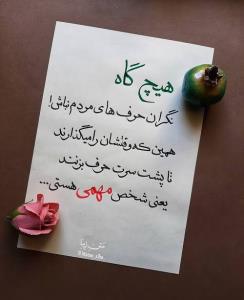 هیچ گاه
نگران حرف های مردم نباش!
همین که وقتشان را میگذارند
تا پشت سرت حرف بزنند
یعنی شخص مهمی هستی...
متن زیبا